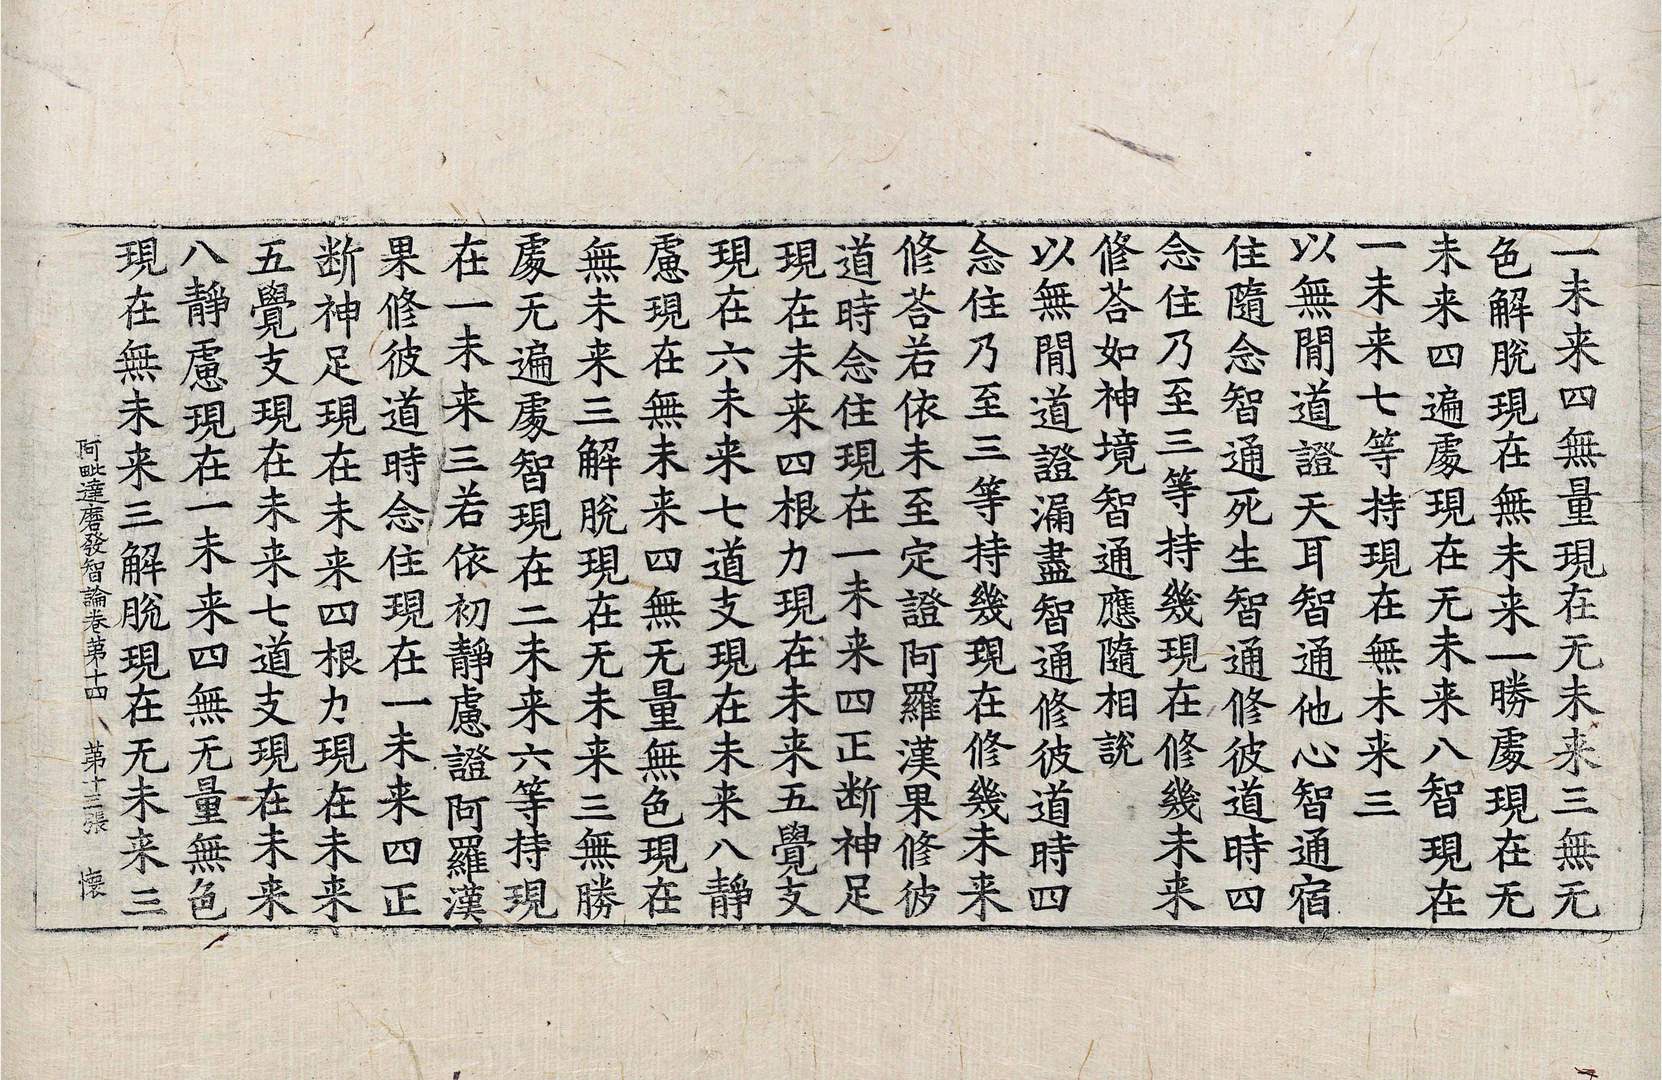 一未来四無量現在无未来三無无
色解脫現在無未来一勝處現在无
未来四遍處現在无未来八智現在
一未来七等持現在無未来三
以無閒道證天耳智通他心智通宿
住隨念智通死生智通修彼道時四
念住乃至三等持幾現在修幾未来
修荅如神境智通應隨相說
以無閒道證漏盡智通修彼道時四
念住乃至三等持幾現在修幾未来
修荅若依未至定證阿羅漢果修彼
道時念住現在一未来四正断神足
現在未来四根力現在未来五覺支
現在六未来七道支現在未来八靜
慮現在無未来四無无量無色現在
無未来三解脫現在无未来三無勝
處无遍處智現在二未来六等持現
在一未来三若依初靜慮證阿羅漢
果修彼道時念住現在一未来四正
断神足現在未来四根力現在未来
五覺支現在未来七道支現在未来
八靜慮現在一未来四無无量無色
現在無未来三解脫現在无未来三
阿毗達磨發智論卷苐十四 苐十三張 懷